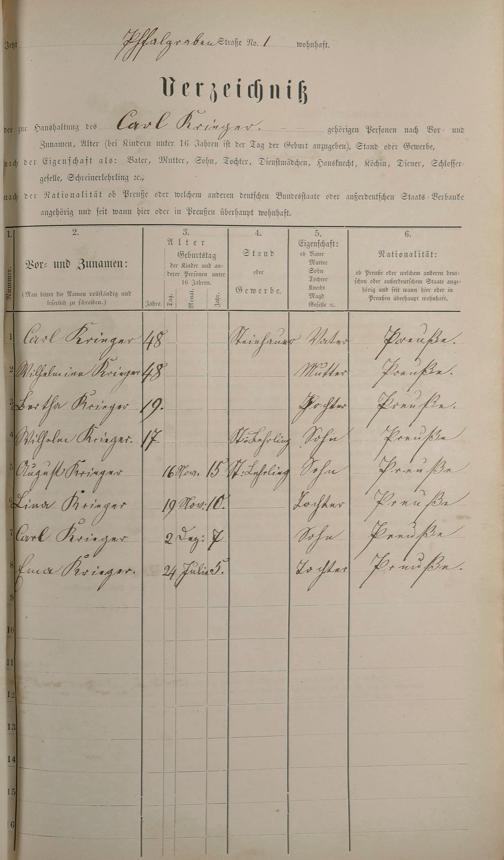 Jetzt Pfhalgraben Straße No. 1 wohnhaft.
Verzeichniß
der zur Haushaltung des Carl Krieger. gehörigen Personen nach Vor- und
Zunamen, Alter (bei Kindern unter 16 Jahren ist der Tag der Geburt anzugeben), Stand oder Gewerbe,
nach der Eigenschaft als: Vater, Mutter, Sohn, Tochter, Dienstmädchen, Hausknecht, Köchin, Diener, Schlosser-
geselle, Schreinerlehrling ꝛc.,
nach der Nationalität ob Preuße oder welchem anderen deutschen Bundesstaate oder außerdeutschen Staats-Verbande
angehörig und seit wann hier oder in Preußen überhaupt wohnhaft.
1. 2. 3. 4. 5. 6.
Nummer. Vor- und Zunamen: Alter Stand oder Gewerbe. Eigenschaft: Nationalität:
(Man bittet die Namen vollständig und leserlich zu schreiben.)
Jahre. Geburtstag der Kinder und anderer Personen unter 16 Jahren. Tag. Monat. Jahr.
ob Vater Mutter Sohn Tochter Knecht Magd Geselle ꝛc.
ob Preuße oder welchem anderen deutschen oder außerdeutschen Staate angehörig und seit wann hier oder in Preußen überhaupt wohnhaft.
1 Carl Krieger 48 Steinhauer Vater Preuße.
2 Wilhelmine Krieger 48 Mutter Preuße.
3 Bertha Krieger 19. Tochter Preuße.
4 Wilhelm Krieger. 17 St: Lehrling Sohn Preuße
5 August Krieger 16 Nov. 15 St: Lehrling Sohn Preuße
6 Lina Krieger 19 Nov: 10. Tochter Preuße
7 Carl Krieger 2 Dez: 7 Sohn Preuße
8 Ema Krieger. 24 Julie 5. Tochter Preuße.
9
10
11
12
13
14
15
6